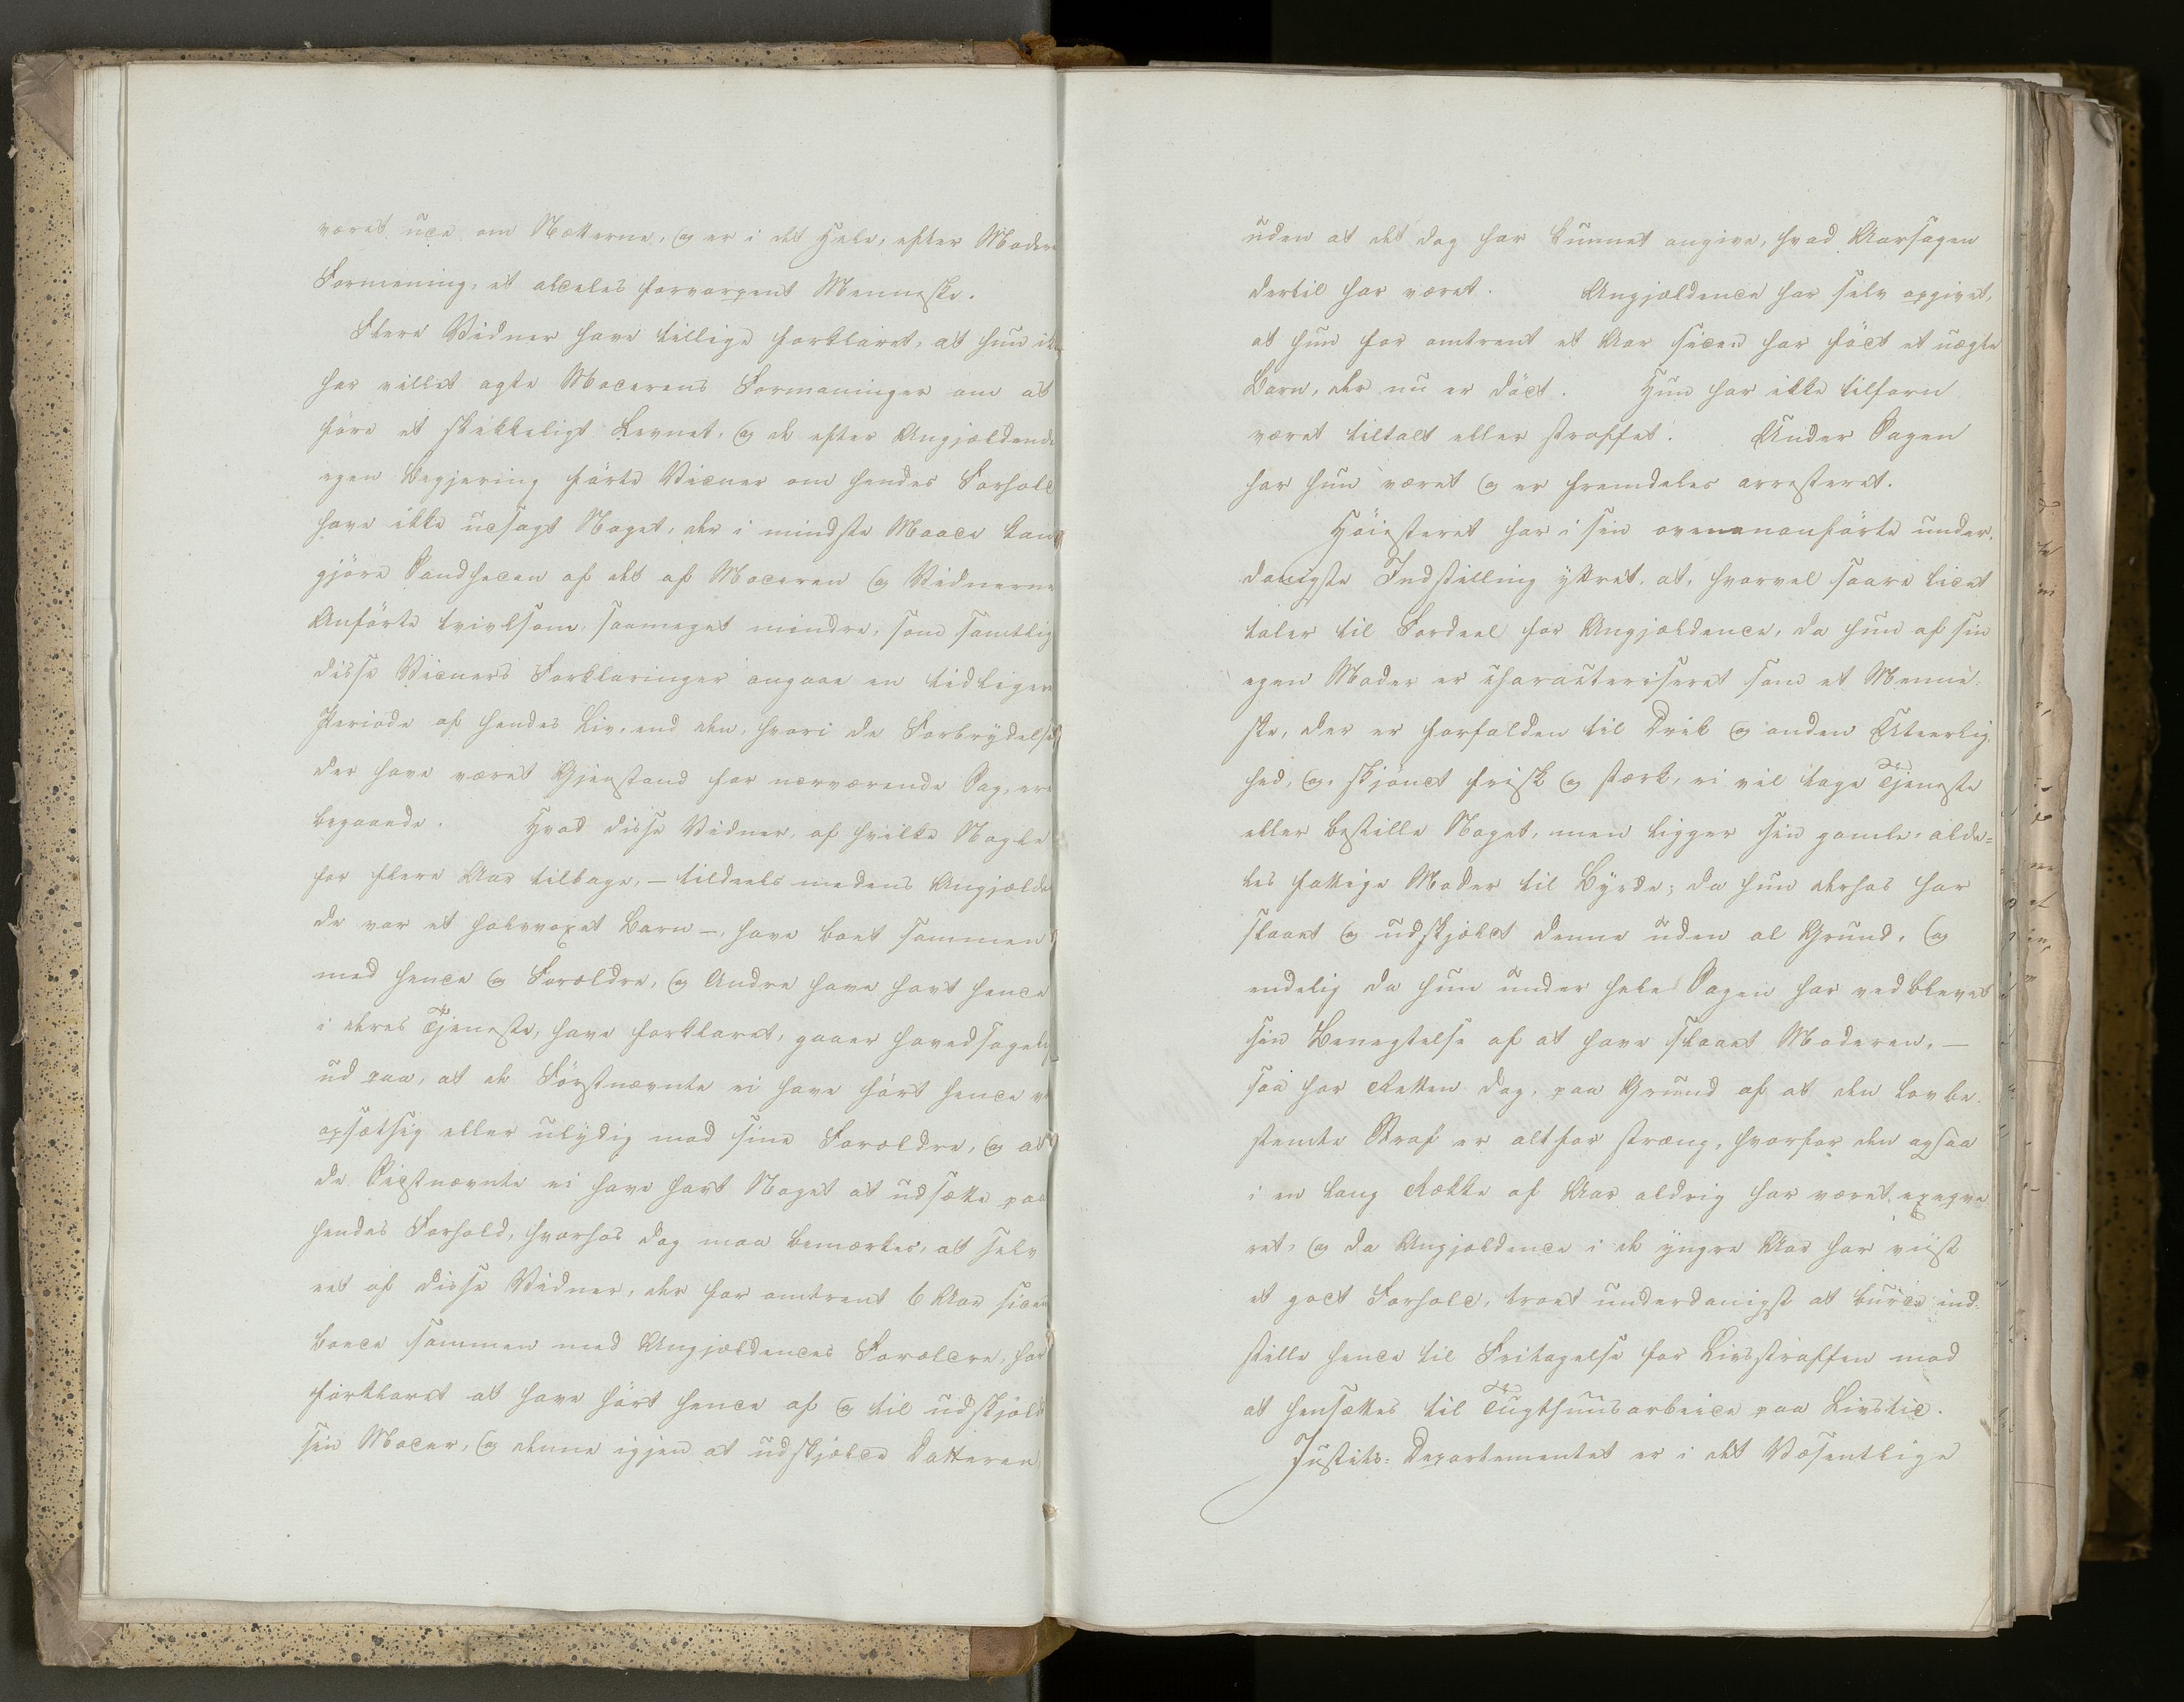 været ude om Nætterne, og er i det Hele, efter Moderens
Formening, et aldeles forvorpent Menneske.
Flere Vidner have tillige forklaret, at hun ikke
har villet agte Moderens Formaninger om at
føre et skikkeligt Levnet, og de efter Angjældendes
egen Begjering førte Vidner om hendes Forhold
have ikke udsagt Noget, der i mindste Maade kan
gjøre Sandheden af det af Moderen og Vidnerne
Anførte tvivlsom, saameget mindre, som samtlige
disse Vidners Forklaringer angaae en tidligere
Periode af hendes Liv, end den, hvori de Forbrydelser,
der have været Gjenstand for nærværende Sag, ere
begaaede. Hvad disse Vidner, af hvilke Nogle
for flere Aar tilbage, – tildeels medens Angjælden
de var et halvvoxet Barn –, have boet sammen
med hende og Forældre, og Andre have havt hende
i deres Tjeneste, have forklaret, gaaer hovedsagelig
ud paa, at de Førstnævnte ei have hørt hende være
opsætsig eller ulydig mod sine Forældre, og at
de Sidstnævnte ei have havt Noget at udsætte paa
hendes Forhold, hvorhos dog maa bemærkes, at selv
eet af disse Vidner, der for omtrent 6 Aar siden
boede sammen med Angjældendes Forældre, har
forklaret at have hørt hende af og til udskjælde
sin Moder, og denne igjen at udskjælde Datteren
uden at det dog har kunnet angive, hvad Aarsagen
dertil har været. Angjældende har selv opgivet,
at hun for omtrent et Aar siden har født et uægte
Barn, der nu er dødt. Hun har ikke tilforn
været tiltalt eller straffet. Under Sagen
har hun været og er fremdeles arresteret.
Høiesteret har i sin ovenanførte under-
danigste Indstilling yttret, at, hvorvel saare lidet
taler til Fordeel for Angjældende, da hun af sin
egen Moder er characteriseret som et Menne-
ske, der er forfalden til Drik og anden Uteerlig-
hed, og, skjøndt frisk og stærk, ei vil tage Tjeneste
eller bestille Noget, men ligger sin gamle, alde-
les fattige Moder til Byrde; da hun derhos har
slaaet og udskjældt denne uden al Grund, og
endelig da hun under hele Sagen har vedblevet
sin Benegtelse af at have slaaet Moderen, –
saa har Retten dog, paa Grund af at den lovbe-
stemte Straf er altfor stræng, hvorfor den ogsaa
i en lang Række af Aar aldrig har været exeqve-
ret, og da Angjældende i de yngre Aar har viist
et godt Forhold, troet underdanigst at burde ind-
stille hende til Fritagelse for Livsstraffen mod
at hensættes til Tugthuusarbeide paa Livstid.
Justits-Departementet er i det Væsentlige